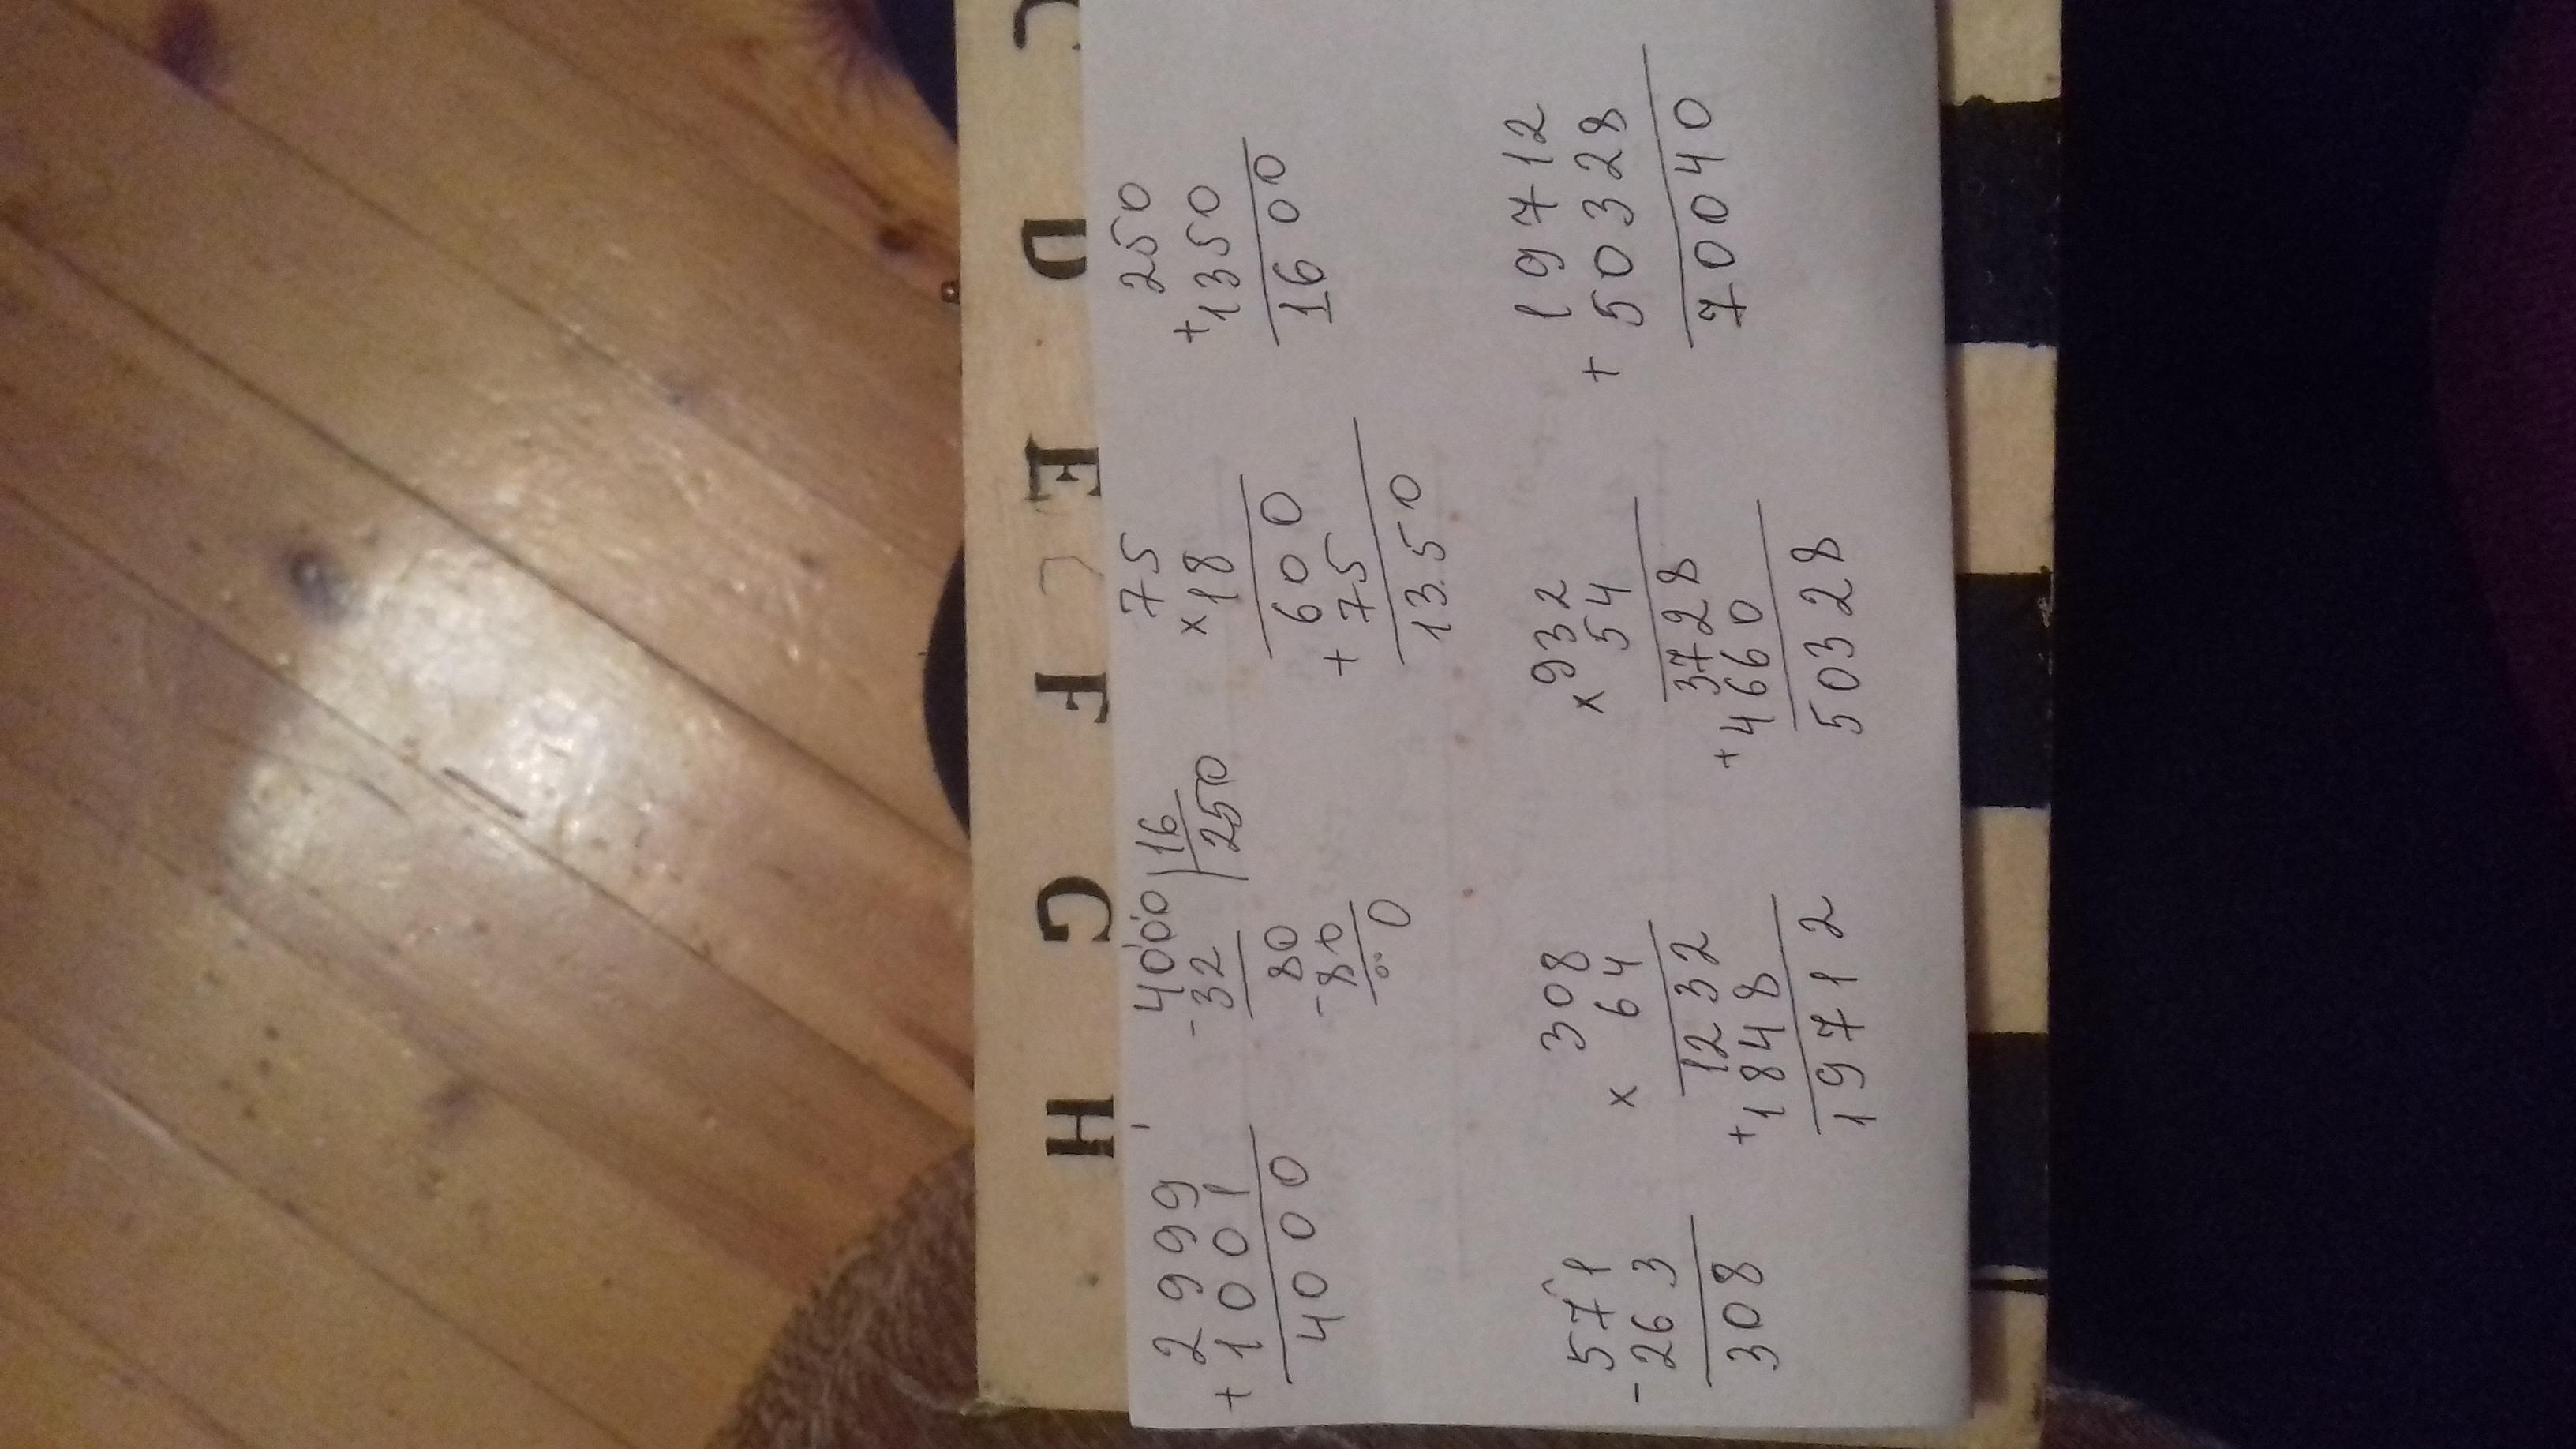 H G F E D
2999
+1001
4000
4000 | 16
-32 | 250
80
-80
0
75
×18
600
+75
13.50
250
+1350
1600
571
-263
308
308
× 64
1232
+1848
19712
×932
54
3728
+4660
50328
19712
+ 50328
70040